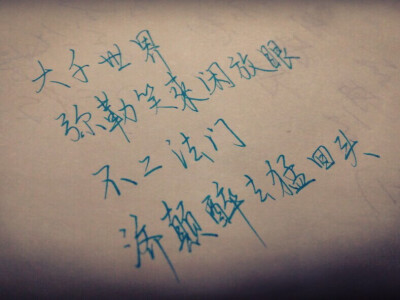 大千世界
弥勒笑来闲放眼
不二法门
济颠醉去猛回头